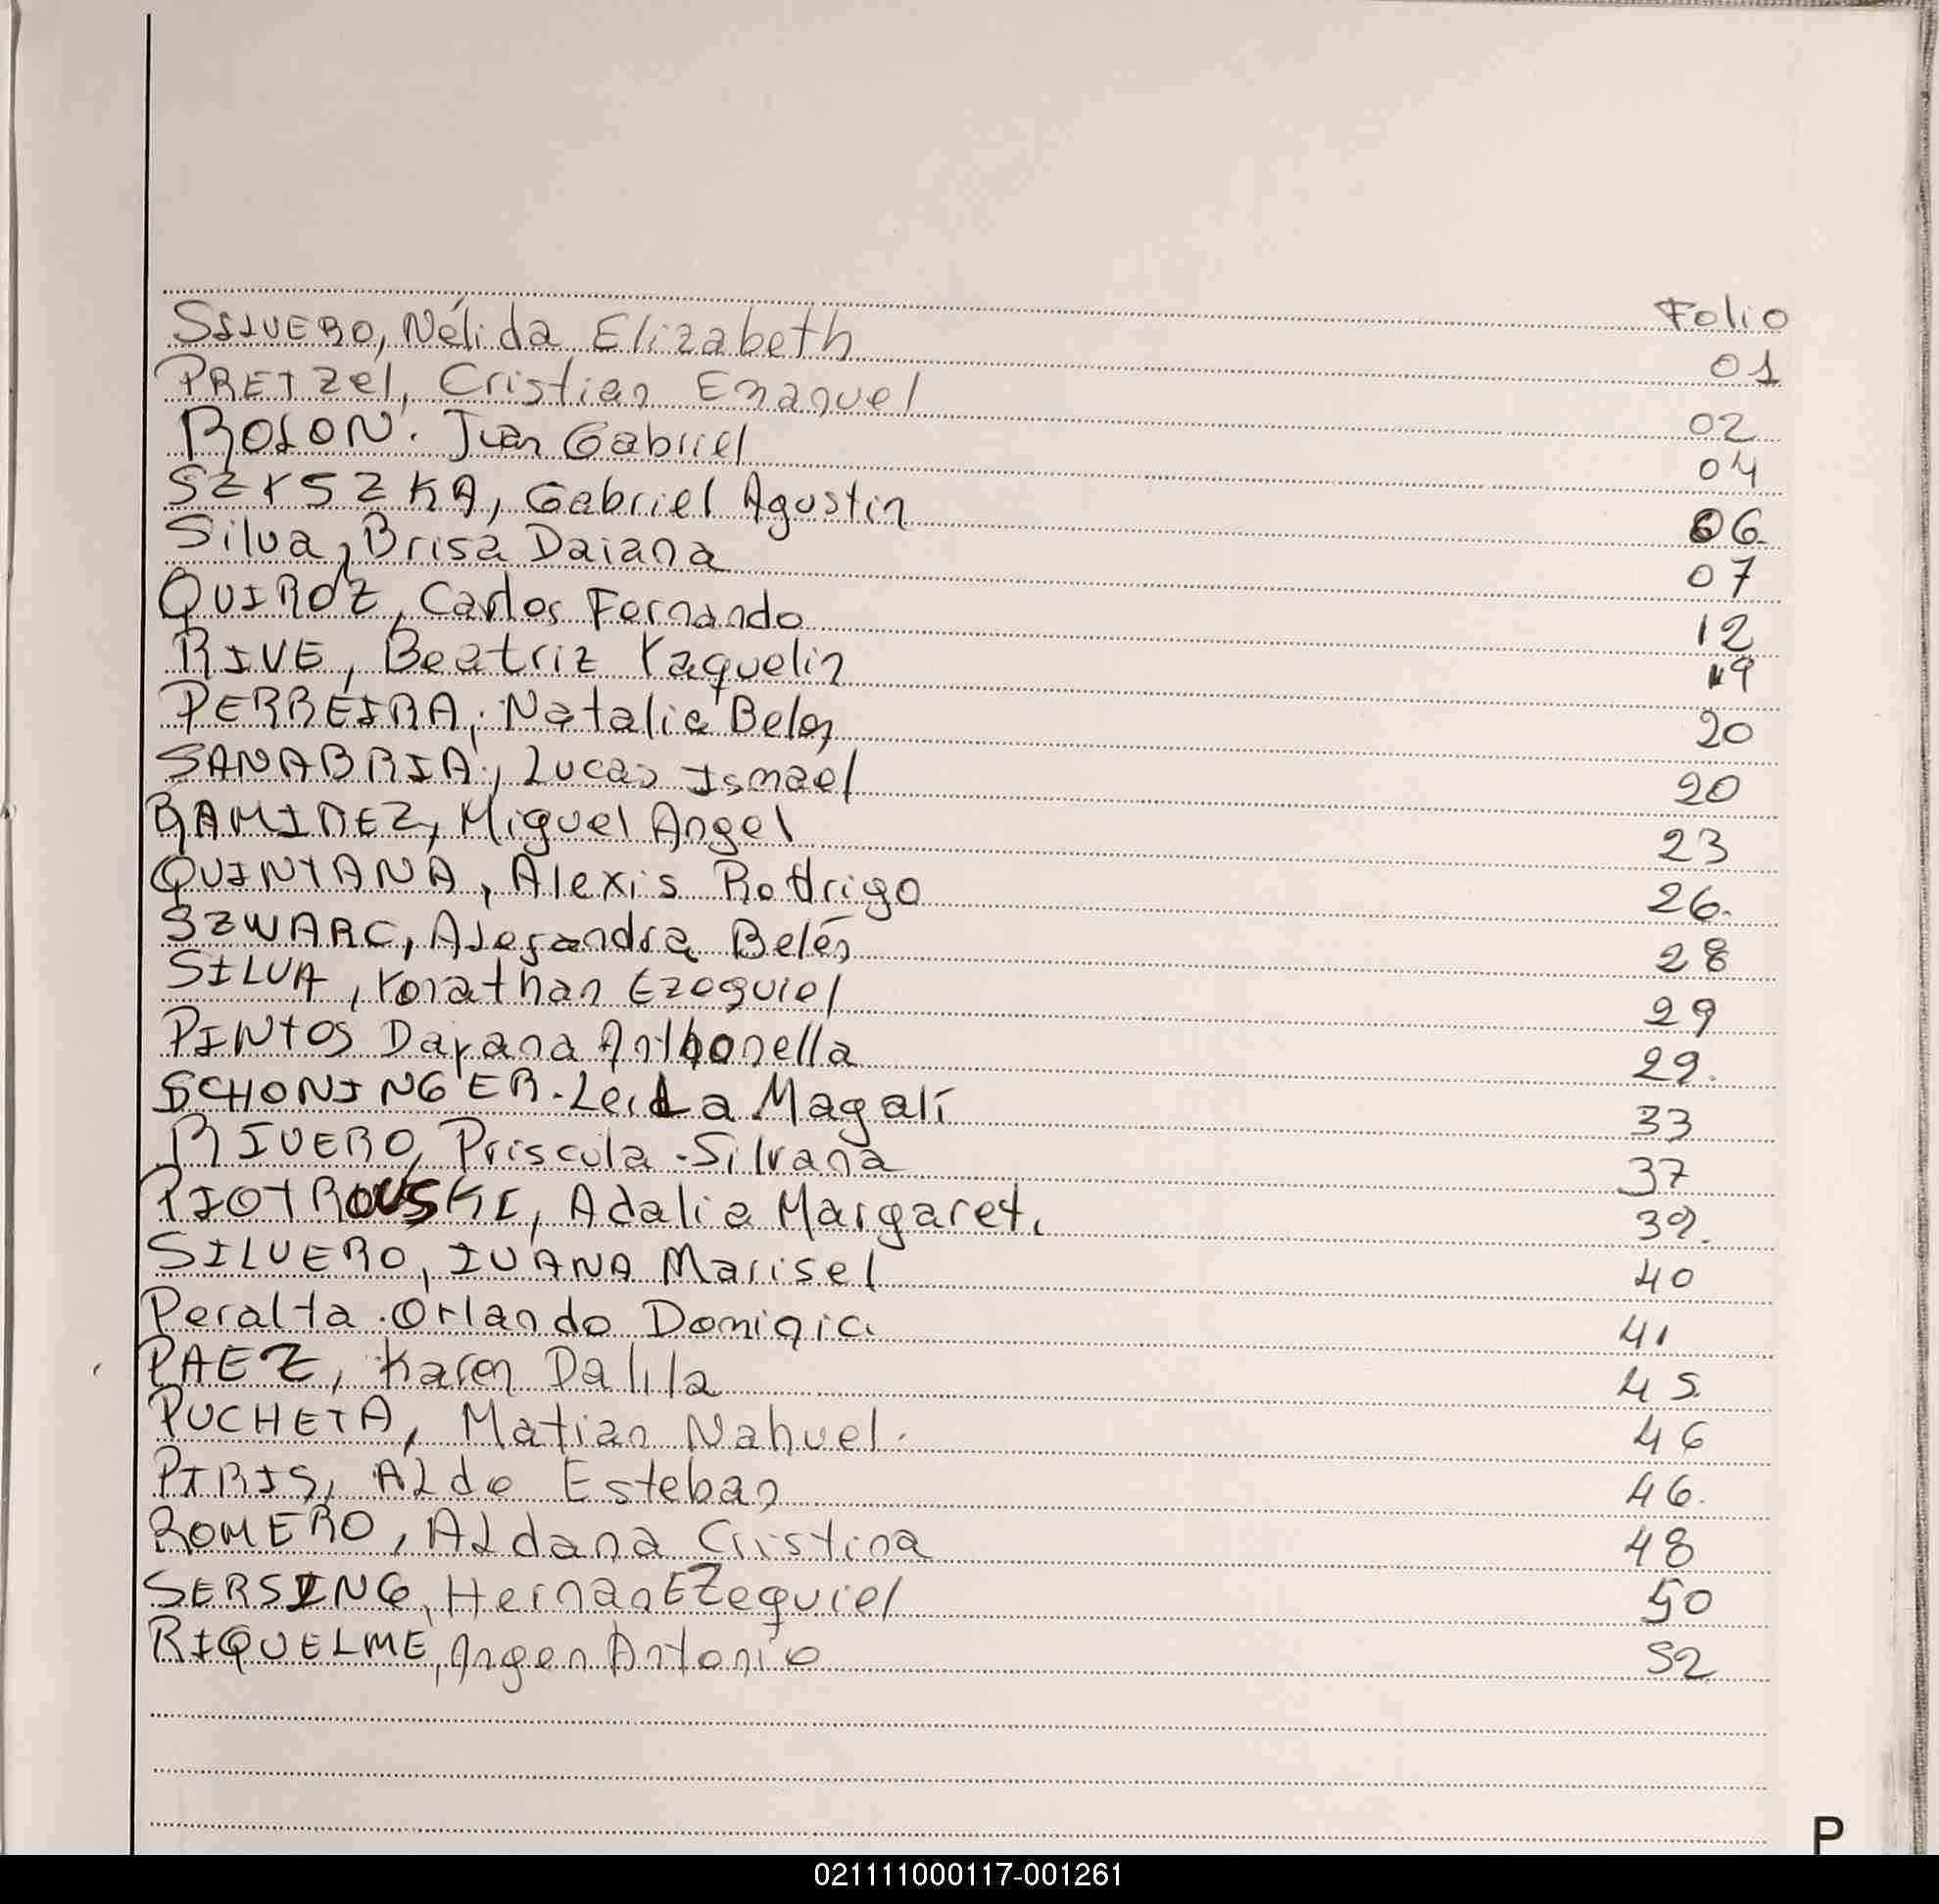 Folio
SILVERO, Nélida Elizabeth 01
PRETZel, Cristian Emanuel 02
ROLON. Juan Gabriel 04
SZYSZKA, Gabriel Agustin 06
Silva, Brisa Daiana 07
QUIROZ, Carlos Fernando 12
RIVE, Beatriz Yaquelin 19
PERREIRA, Natalia Belen 20
SANABRIA, Lucas Ismael 20
RAMIREZ, Miguel Angel 23
QUINTANA, Alexis Rodrigo 26.
SZWARC, Alejandra Belén 28
SILVA, Yonathan Ezequiel 29
PINTOS Dayana Anthonella 29.
SCHONINGER. Leila Magalí 33
RIVERO, Priscila Silvana 37
PIOTROWSKI, Adalia Margaret. 39.
SILVERO, IVANA Marisel 40
Peralta Orlando 41
PAEZ, Karen Dalila 45.
PUCHETA, Matias Nahuel. 46
PIRIS, Aldo Esteban 46.
ROMERO, Aldana Cristina 48
SERSING, Hernan EZequiel 50
RIQUELME, Angen Antonio 52
P
021111000117-001261